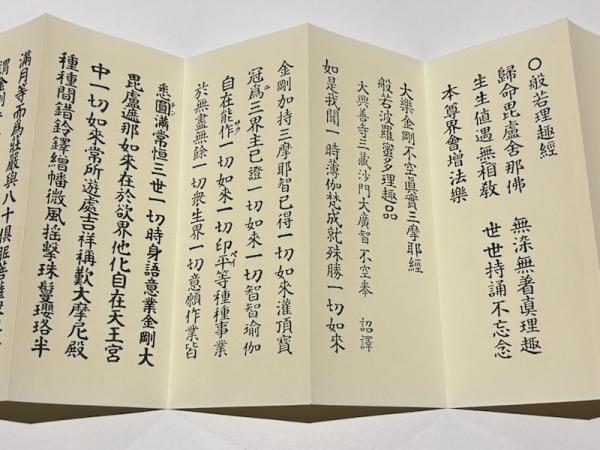 〇般若理趣經
歸命毘盧舍那佛　無染無著眞理趣
生生値遇無相教　世世持誦不忘念
本尊界會增法樂
大樂金剛不空眞實三摩耶經
般若波羅蜜多理趣品
大興善寺三藏沙門大廣智不空奉　詔譯
如是我聞一時薄伽梵成就殊勝一切如來
金剛加持三摩耶智已得一切如來灌頂寶
冠爲三界主已證一切如來一切智智瑜伽
自在能作一切如來一切印平等種種事業
於無盡無餘一切衆生界一切意願作業皆
悉圓滿常恒三世一切時身語意業金剛大
毘盧遮那如來在於欲界他化自在天王宮
中一切如來常所遊處吉祥稱歎大摩尼殿
種種間錯鈴鐸繒幡微風搖擊珠鬘瓔珞半
滿月等而爲莊嚴與八十俱胝菩薩衆
謂金剛